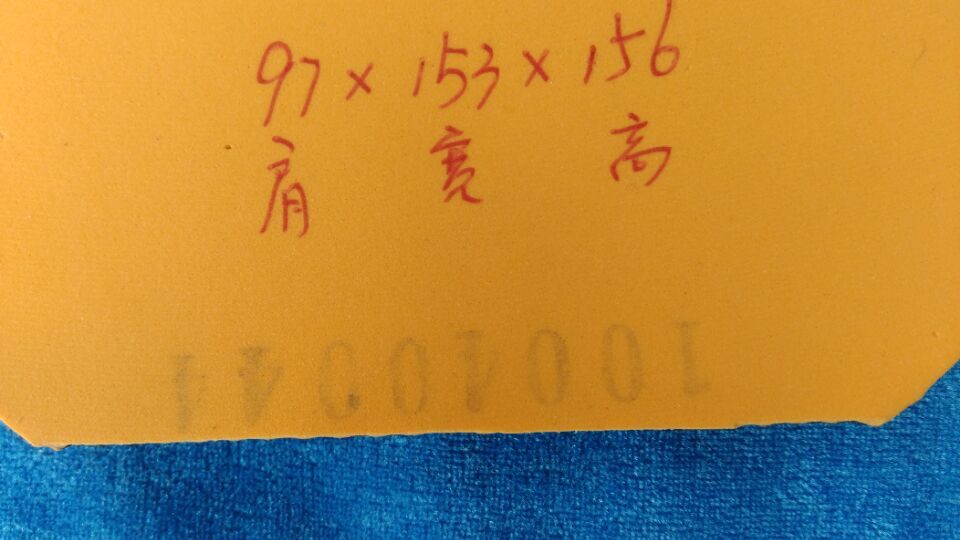 97×153×156
肩 宽 高